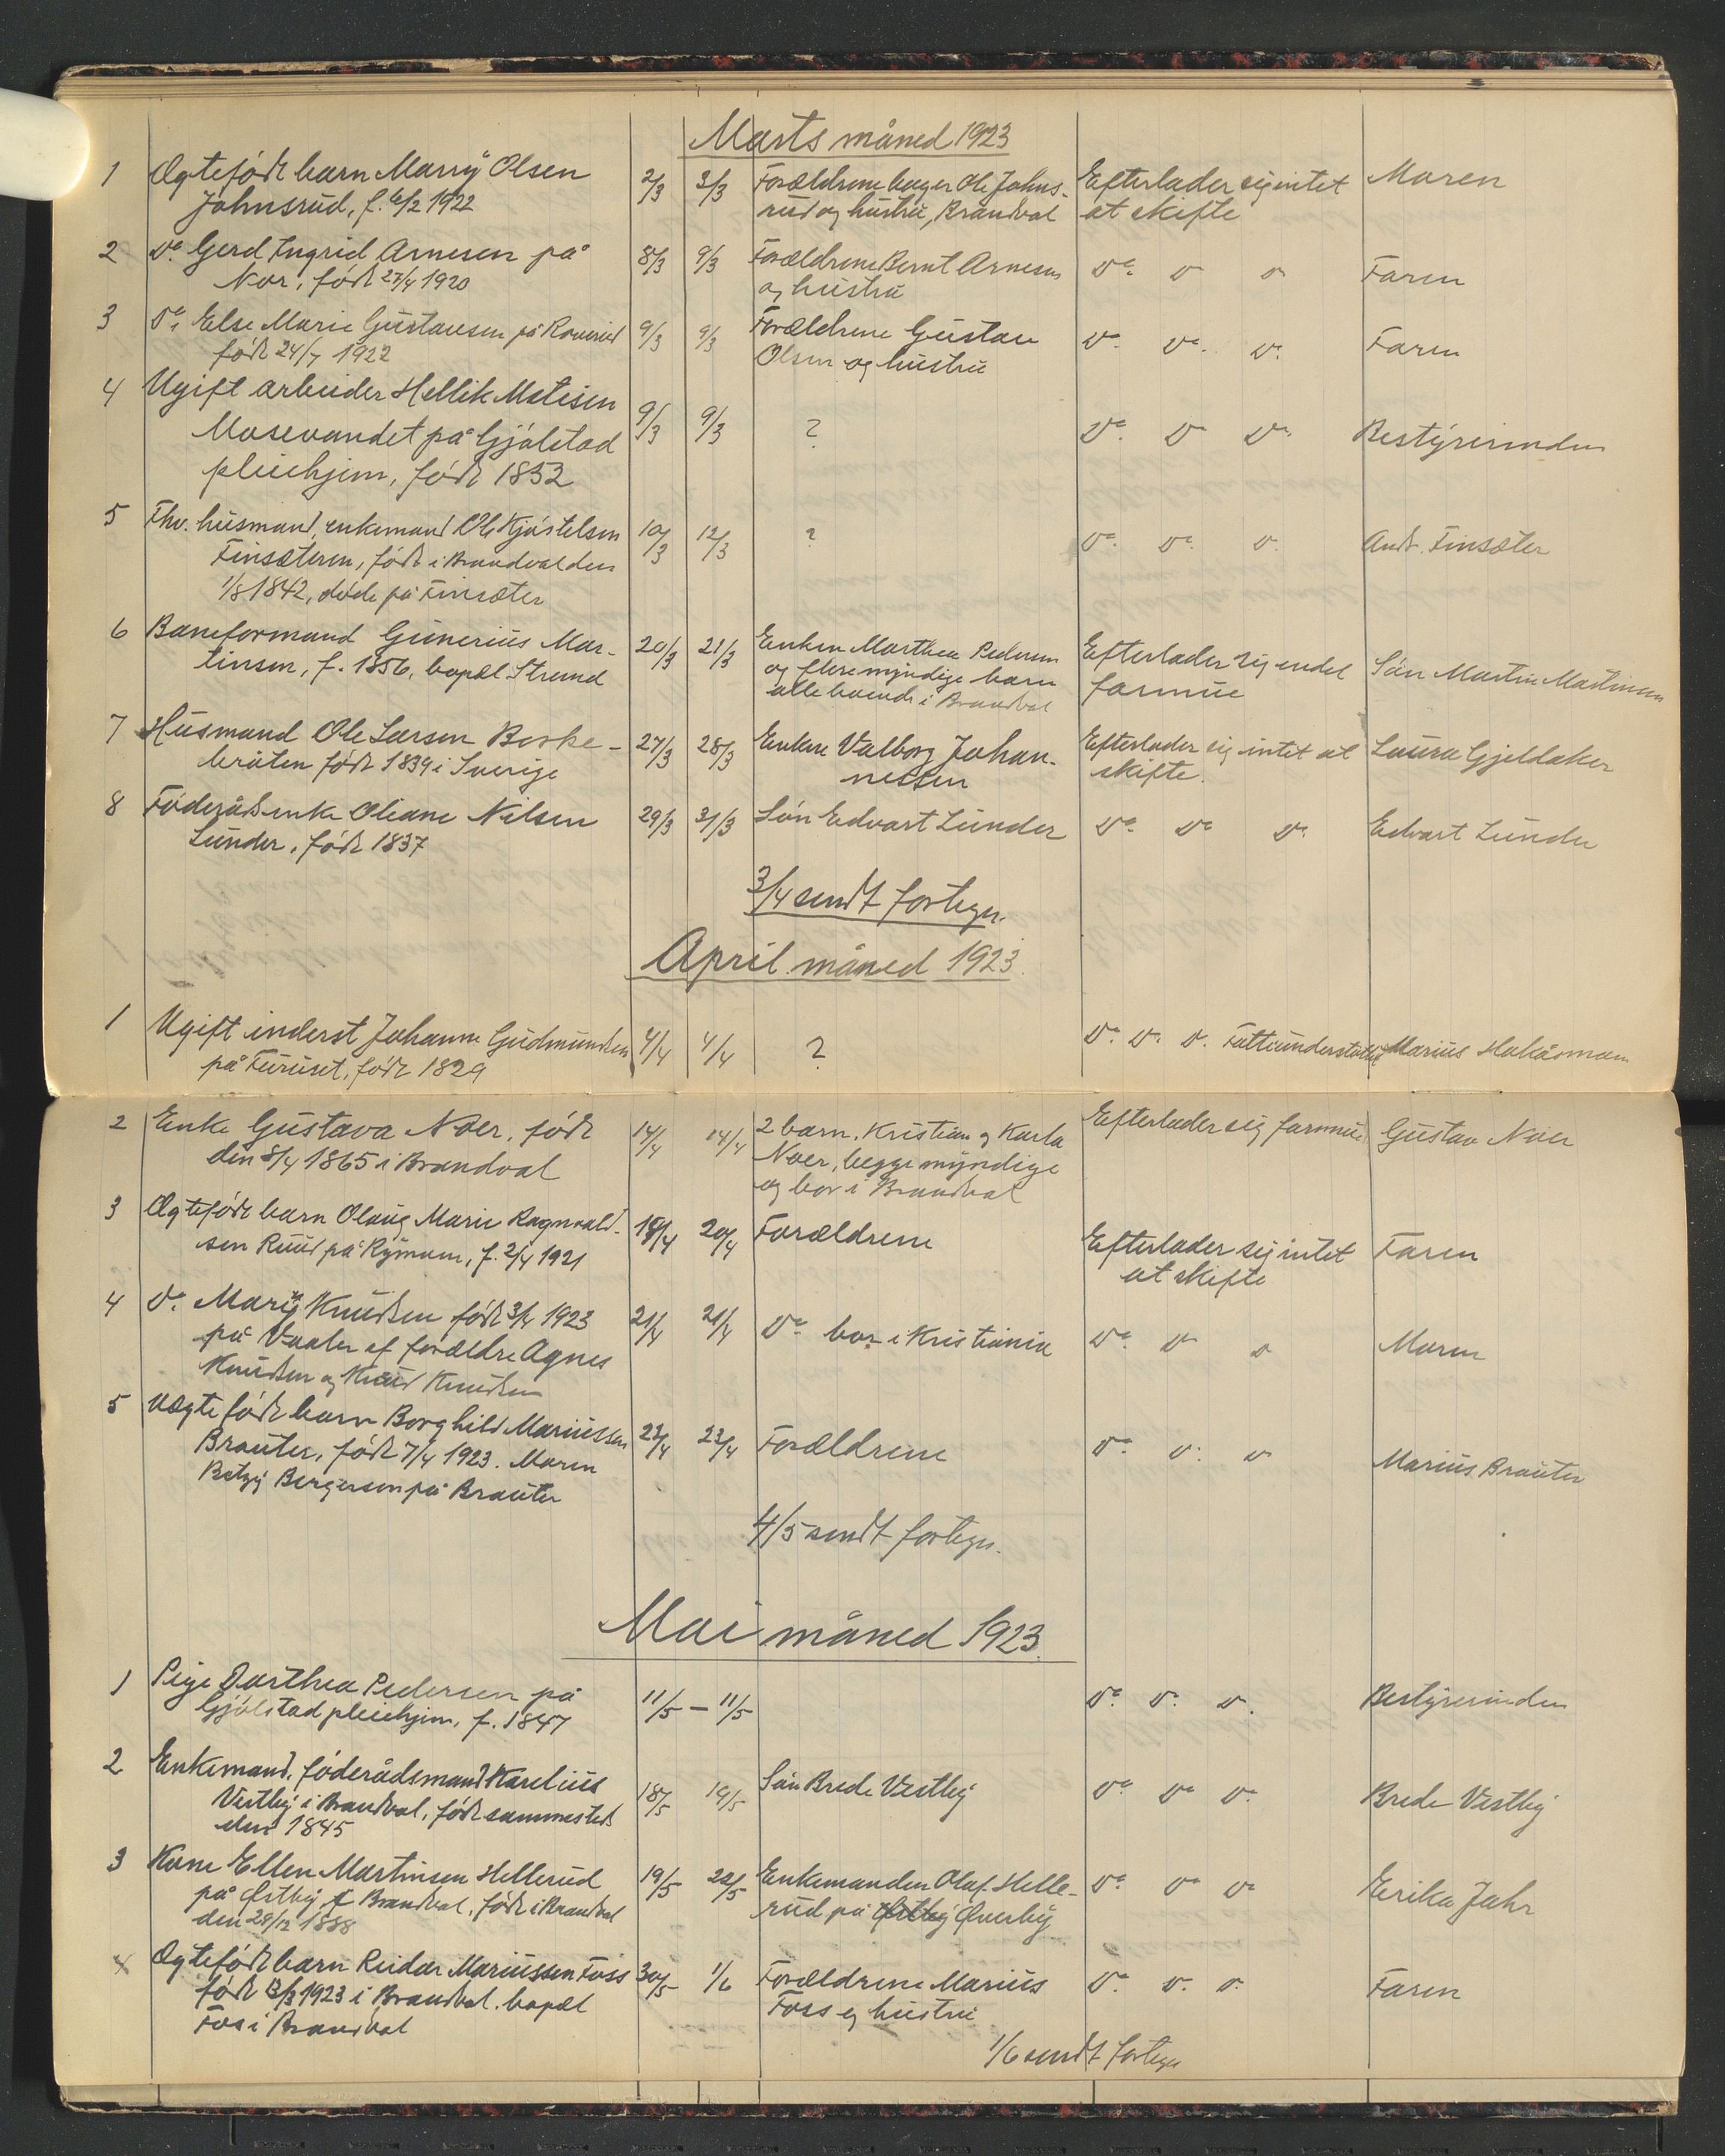 Marts måned 1923
1 Ægtefødt barn Marry Olsen 2/3 3/3 Forældrene bager Ole Johns- Efterlader sig intet Moren
Johnsrud, f. 6/2 1922 rud og hustru, Brandval at skifte
2 Do. Gerd Ingrid Arnesen på 8/3 9/3 Forældrene Bernt Arnesen Do. D D Faren
Nor, født 27/4 1920 og hustru
3 Do. Else Marie Gustavsen på 9/3 9/3 Forældrene Gustav Do. Do. D. Faren
født 24/7 1922 Olsen og hustru
4 Ugift arbeider Hellik Matisen 9/3 9/3 ? Do. D Do. Bestyrerinden
Mosevandet på Gjølstad
pleiehjem, født 1852
5 Fhv. husmand, enkemand Ole Kjøstelsen 10/3 12/3 ? Do. Do. D. And. Finsæter
Finsæteren, født i Brandval den
1/8 1842, døde på Finsæter
6 Baneformand Gunerius Mar- 20/3 21/3 Enken Marthea Pedersen Efterlader sig endel Søn Martin Martinsen
tinsen, f. 1856, bopæl Strand og flere myndige barn formue
alle boende i Brandval
7 Husmand Ole Larsen Boske- 27/3 28/3 Enken Valborg Johan- Efterlader sig intet at Laura Gjeldaker
bråten født 1839 i Sverige nessen skifte.
8 Føderådsenke Oleane Nilsen 29/3 31/3 Søn Edvart Lunder Do. Do D. Edvart Lunder
Lunder, født 1837
3/4 sendt fortegn.
April måned 1923.
1 Ugift inderst Johanne Gudmundsen 4/4 4/4 ? Do. Do. D. Fattiunderstøttet Marius
på Furuset, født 1829
2 Enke Gustava Noer, født 14/4 14/4 2 barn, Kristian og Karla Efterlader sig formue Gustav Noer
den 8/4 1865 i Brandval Noer, begge myndige
og bor i Brandval
3 Ægtefødt barn Olaug Marie Ragnvald- 18/4 20/4 Forældrene Efterlader sig intet Faren
sen Ruud på Rymoen, f. 2/4 1921 at skifte
4 D. Mary Knudsen født 3/4 1923 21/4 21/4 Do. bor i Kristiania Do. D D Moren
på Vaaler af forældre Agnes
Knudsen og Knud Knudsen
5 Uægtefødt barn Borghild Mariussen 22/4 23/4 Forældrene Do. D. D Marius Brauter
Brauter, født 7/4 1923. Moren
Betzy Bergersen på Brauter
4/5 sendt fortegn.
Mai måned 1923.
1 Pige Dorthea Pedersen på 11/5 – 11/5 Do. D. D. Bestyrerinden
Gjølstad pleiehjem, f. 1847
2 Enkemand, føderådsmand Karelius 18/5 19/5 Søn Brede Vestby Do Do D. Brede Vestby
Vestby i Brandval, født sammesteds
den 1845
3 Kone Ellen Martinsen Hellerud 19/5 22/5 Enkemanden Olaf Helle- Do. Do Do Erika Jahr
på Østby i Brandval, født i Brandval rud på Østby Øverby
den 28/12 1888
4 Ægtefødt barn Reidar Mariussen Foss 30/5 1/6 Forældrene Marius Do. D. D. Faren
født 13/3 1923 i Brandval. bopæl Foss og hustru
Fos i Brandval
1/6 sendt fortegn